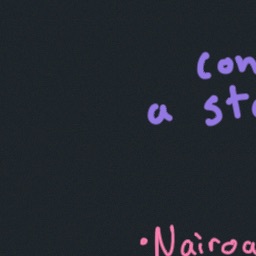 con
a sta
•Nairoa